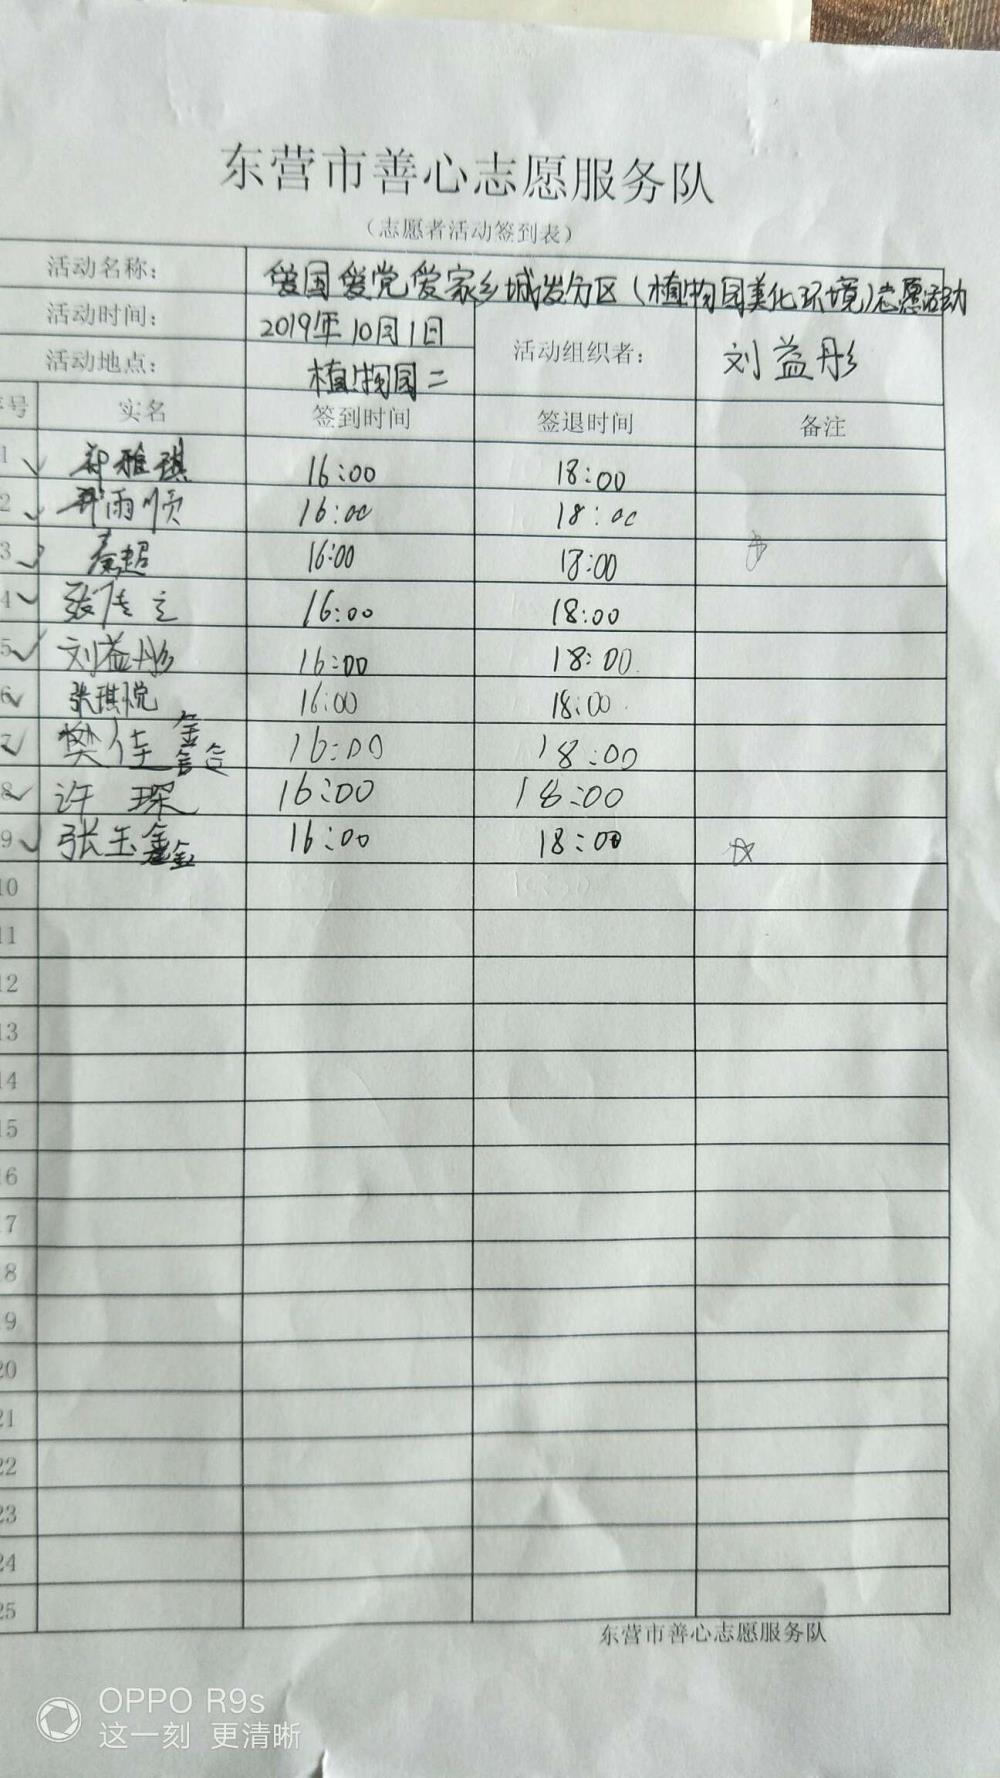 东营市善心志愿服务队
（志愿者活动签到表）
活动名称： 爱国爱党爱家乡城发分区（植物园美化环境）志愿活动
活动时间： 2019年10月1日 活动组织者： 刘益彤
活动地点： 植物园二
序号 实名 签到时间 签退时间 备注
1 雅琪 16:00 18:00
2 雨顺 16:00 18:00
3 秦超 16:00 18:00
4 张 16:00 18:00
5 刘益彤 16:00 18:00
6 张琪悦 16:00 18:00
7 樊佳鑫 16:00 18:00
8 许琛 16:00 18:00
9 张玉鑫 16:00 18:00
10
11
12
13
14
15
16
17
18
19
20
21
22
23
24
25
东营市善心志愿服务队
OPPO R9s
这一刻 更清晰